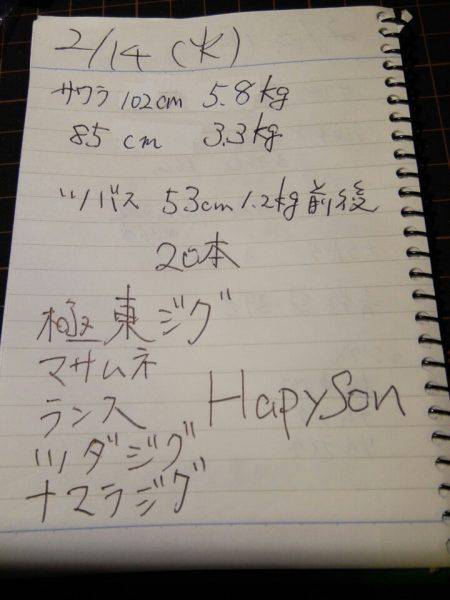 2/14 (火)
サワラ 102cm 5.8kg
85 cm 3.3kg
ツバス 53cm 1.2kg前後
20本
極東ジグ
マサムネ
ランス
HapySon
ツダジグ
ナマラジグ